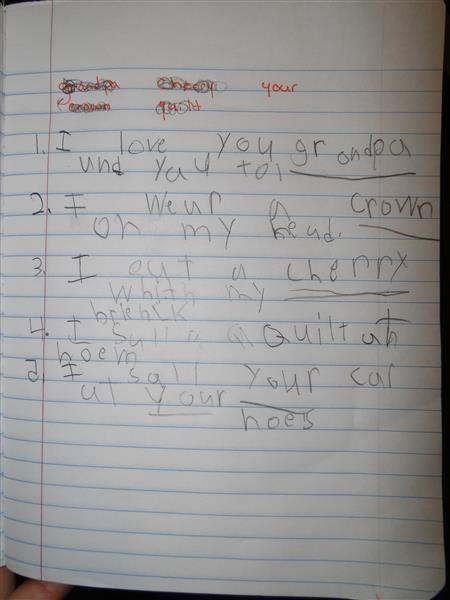 grandpa cherry your
crown quilt
1. I love you grandpa
und yau to!
2. I weur a crown
on my head.
3. I eut a cherry
whith my
brenk
4. I sall a Quilt at
hoem
5. I sall your car
at your
hoes